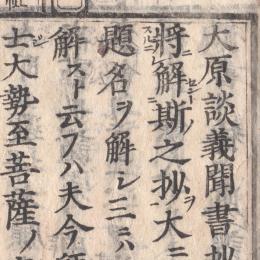 大原談義聞書抄
將ニ解スルニ斯ノ之抄ヲ大ニ
題名ヲ解シ三ニハ
解スト云フハ夫今師
士大勢至菩薩ノ